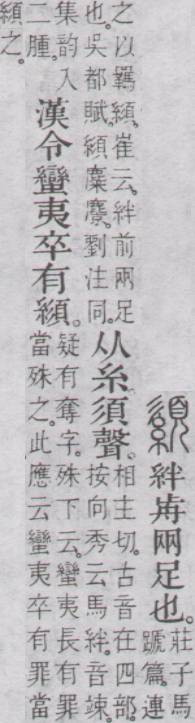 䋶絆歬兩足也。莊子馬蹏篇。連
之以羈䋶。崔云。絆前兩足也。吳都賦。䋶麋麖。劉注同。从糸。須聲。相主切。古音在四部。按向秀云馬絆。音竦。
集韵入二腫。漢令蠻夷卒有䋶。疑有奪字。殊下云。蠻夷長有罪當殊之。此應云蠻夷卒有罪當
䋶之。